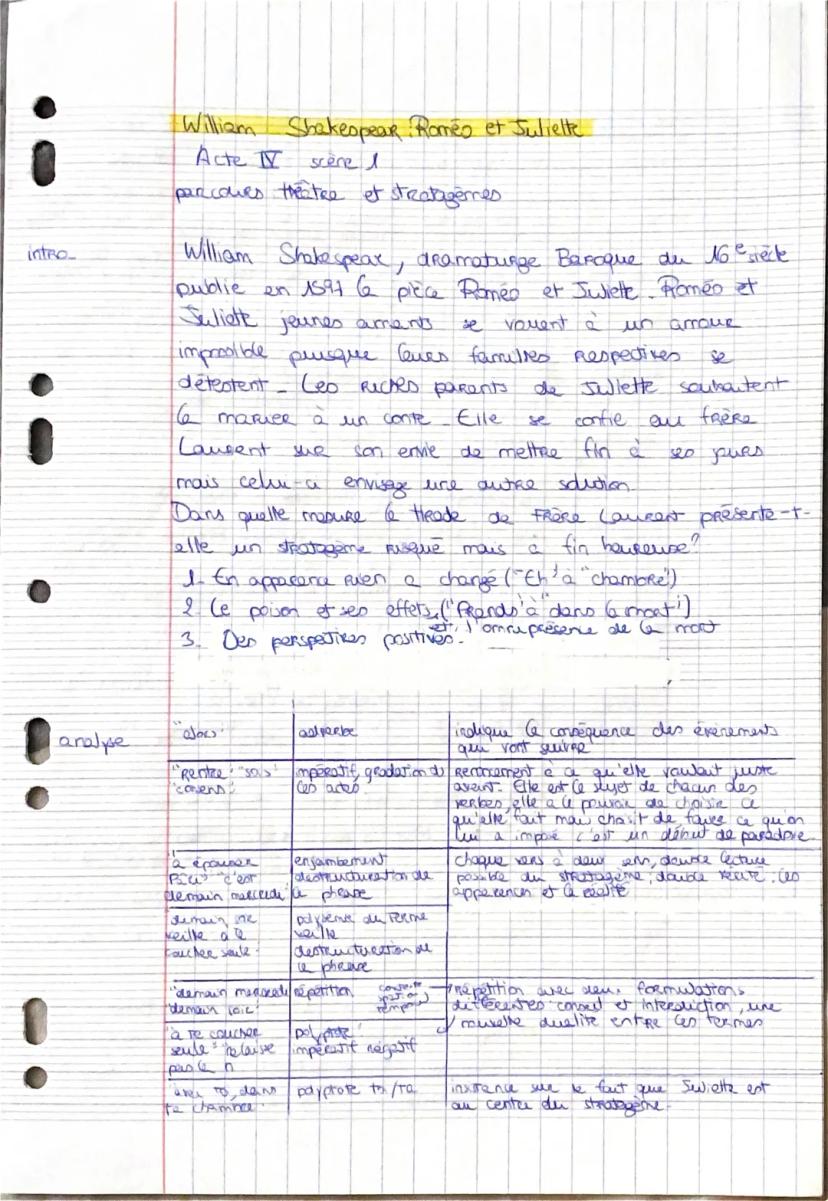 William Shakespear : Roméo et Juliette
Acte IV scène 1
parcours théâtre et stratagèmes
intro_
William Shakespear, dramaturge Baroque du 16e siècle
publie en 1597 la pièce Roméo et Juliette. Roméo et
Juliette jeunes amants se vouent à un amour
impossible puisque leurs familles respectives se
détestent _ Les riches parents de Juliette souhaitent
la marier à un conte _ Elle se confie au frère
Laurent sur son envie de mettre fin à ses jours
mais celui-ci envisage une autre solution.
Dans quelle mesure la tirade de Frère Laurent présente-t-
elle un stratagème risqué mais à fin heureuse ?
1. En apparence rien a changé ("Eh" à "chambre")
2. Le poison et ses effets, ("Prends" à "dans la mort")
et l'omniprésence de la mort
3. Des perspectives positives.
analyse
"alors" adverbe indique la conséquence des évènements
qui vont suivre
"Rentre" "sois" impératif, gradation de Renoncement à ce qu'elle voulait juste
"consens" ces actes avant. Elle est le sujet de chacun des
verbes, elle a le pouvoir de choisir ce
qu'elle fait mais choisit de faire ce qu'on
lui a imposé c'est un début de paradoxe
"à épouser enjambement chaque vers à deux sens, double lecture
Pâris" "c'est destructuration de possible du stratagème, double récité : les
demain mercredi" la phrase apparences et la réalité
demain ne polysémie du terme
veille à te veille
coucher seule" destructuration de
la phrase
"demain mercredi répétition répétition avec deux formulations
"demain soir" différentes conseil et interdiction, une
"à te coucher polyptote nouvelle dualité entre ces termes
seule" "laisse impératif négatif
pas la n
avec toi, dans polyptote toi/ta insistance sur le fait que Juliette est
ta chambre" au centre du stratagème.